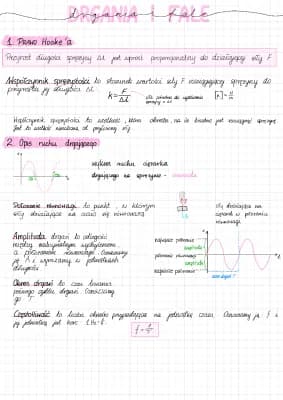 DRGANIA I FALE
1. PRAWO Hooke'a
Przyrost długości sprężyny ΔL jest wprost proporcjonalny do działającej siły F
Współczynnik sprężystości to stosunek wartości siły F rozciągającej sprężynę do
przyrostu jej długości ΔL
k = F/ΔL
[k] = N/m
Współczynnik sprężystości to wielkość, która określa, na ile trudno jest rozciągnąć sprężynę.
Jest to wielkość
2. Opis ruchu drgającego
wykres ruchu ciężarka
drgającego na sprężynie - sinusoida
Położenie równowagi to punkt, w którym
siły działające na ciało się równoważą
siły działające na
ciężarek w położeniu
równowagi
Amplituda drgań to odległość
między maksymalnym wychyleniem,
a położeniem równowagi. Oznaczamy
ją A i wyrażamy w jednostkach
długości
najwyższe położenie
amplituda
położenie równowagi
amplituda
najniższe położenie
okres drgań T
Okres drgań to czas trwania
pełnego cyklu drgań. Oznaczamy
go T.
Częstotliwość to liczba okresów przypadająca na jednostkę czasu. Oznaczamy ją f i
jej jednostką jest herc 1Hz =
f = 1/T